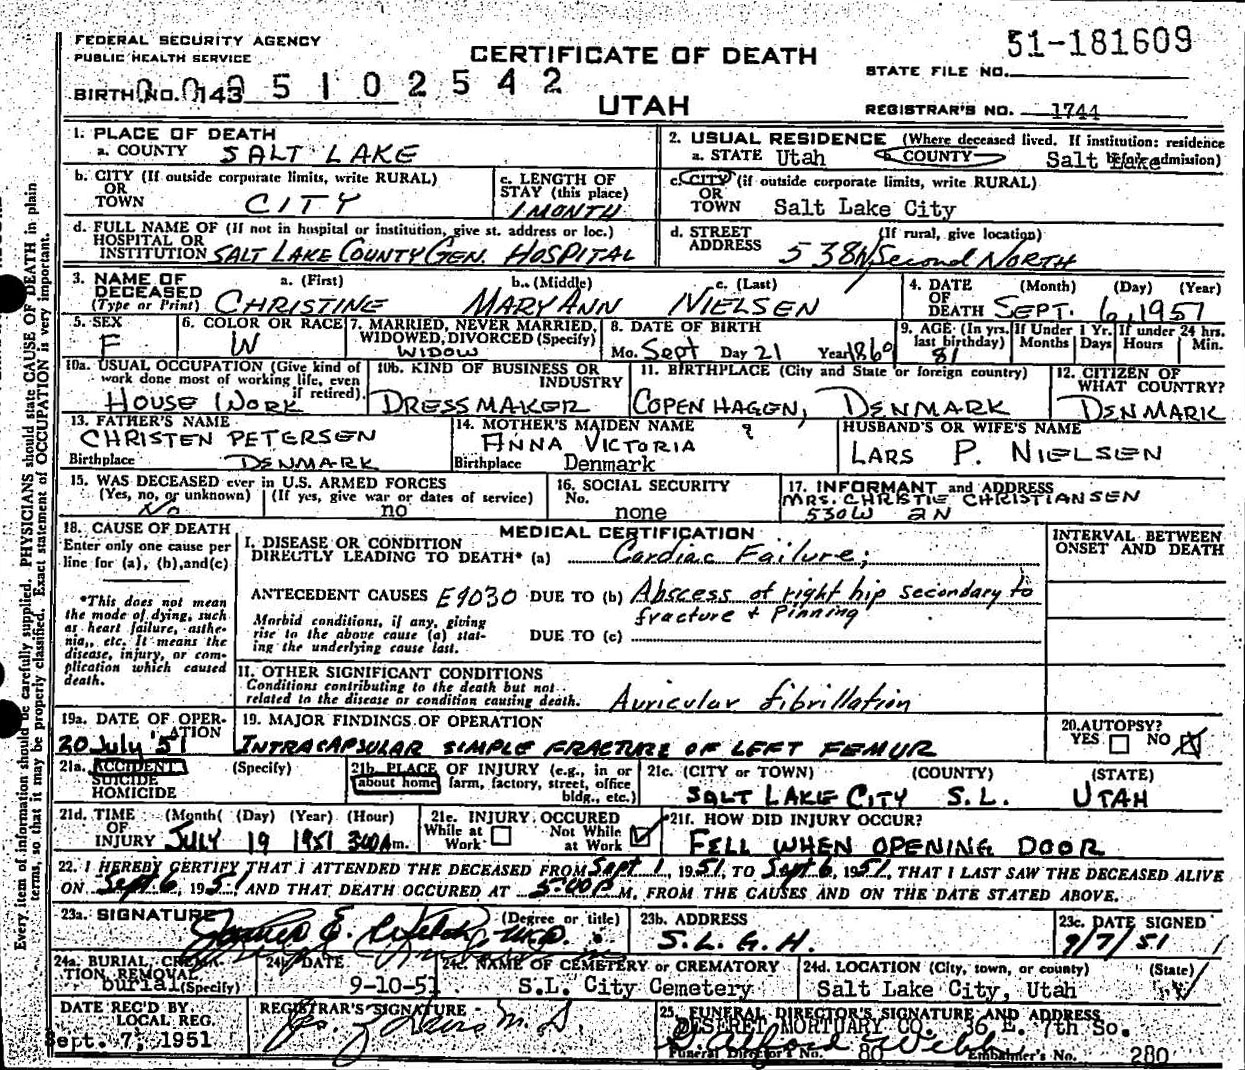 51-181609
FEDERAL SECURITY AGENCY
PUBLIC HEALTH SERVICE
CERTIFICATE OF DEATH
STATE FILE NO.
BIRTH NO. 0143 5 1 0 2 5 4 2
UTAH
REGISTRAR'S NO. 1744
1. PLACE OF DEATH
a. COUNTY SALT LAKE
2. USUAL RESIDENCE (Where deceased lived. If institution: residence before admission)
a. STATE Utah b. COUNTY Salt Lake
b. CITY (If outside corporate limits, write RURAL)
OR
TOWN CITY
c. LENGTH OF
STAY (this place)
1 MONTH
c. CITY (if outside corporate limits, write RURAL)
OR
TOWN Salt Lake City
d. FULL NAME OF (If not in hospital or institution, give st. address or loc.)
HOSPITAL OR
INSTITUTION SALT LAKE COUNTY GEN. HOSPITAL
d. STREET (If rural, give location)
ADDRESS 538 W Second NORTH
3. NAME OF
DECEASED
(Type or Print)
a. (First) b. (Middle) c. (Last)
CHRISTINE MARY ANN NIELSEN
4. DATE (Month) (Day) (Year)
OF
DEATH SEPT. 6, 1951
5. SEX
F
6. COLOR OR RACE
W
7. MARRIED, NEVER MARRIED,
WIDOWED, DIVORCED (Specify)
WIDOW
8. DATE OF BIRTH
Mo. Sept Day 21 Year 1860
9. AGE (In yrs. last birthday)
81
If Under 1 Yr.
Months Days
If under 24 hrs.
Hours Min.
10a. USUAL OCCUPATION (Give kind of
work done most of working life, even
if retired).
HOUSE WORK
10b. KIND OF BUSINESS OR
INDUSTRY
DRESS MAKER
11. BIRTHPLACE (City and State or foreign country)
COPENHAGEN, DENMARK
12. CITIZEN OF
WHAT COUNTRY?
DENMARK
13. FATHER'S NAME
CHRISTEN PETERSEN
Birthplace DENMARK
14. MOTHER'S MAIDEN NAME ?
ANNA VICTORIA
Birthplace Denmark
HUSBAND'S OR WIFE'S NAME
LARS P. NIELSEN
15. WAS DECEASED ever in U.S. ARMED FORCES
(Yes, no, or unknown) (If yes, give war or dates of service)
No no
16. SOCIAL SECURITY
No.
none
17. INFORMANT and ADDRESS
MRS. CHRISTIE CHRISTIANSEN
530 W 2N
18. CAUSE OF DEATH
Enter only one cause per
line for (a), (b), and (c)
*This does not mean
the mode of dying, such
as heart failure, asthe-
nia, etc. It means the
disease, injury, or com-
plication which caused
death.
MEDICAL CERTIFICATION
INTERVAL BETWEEN
ONSET AND DEATH
I. DISEASE OR CONDITION
DIRECTLY LEADING TO DEATH* (a) Cardiac Failure;
ANTECEDENT CAUSES E9030 DUE TO (b) Abscess of right hip secondary to
fracture + Pinning
Morbid conditions, if any, giving
rise to the above cause (a) stat-
ing the underlying cause last.
DUE TO (c)
II. OTHER SIGNIFICANT CONDITIONS
Conditions contributing to the death but not
related to the disease or condition causing death.
Auricular fibrillation
19a. DATE OF OPER-
ATION
20 July 51
19. MAJOR FINDINGS OF OPERATION
INTRACAPSULAR SIMPLE FRACTURE OF LEFT FEMUR
20. AUTOPSY?
YES NO
21a. ACCIDENT (Specify)
SUICIDE
HOMICIDE
21b. PLACE OF INJURY (e.g., in or
about home, farm, factory, street, office
bldg., etc.)
21c. (CITY or TOWN) (COUNTY) (STATE)
SALT LAKE CITY S.L. UTAH
21d. TIME (Month) (Day) (Year) (Hour)
OF
INJURY JULY 19 1951 3:00 A m.
21e. INJURY OCCURED
While at Work Not While at Work
21f. HOW DID INJURY OCCUR?
FELL WHEN OPENING DOOR
22. I HEREBY CERTIFY THAT I ATTENDED THE DECEASED FROM Sept 1, 1951, TO Sept 6, 1951, THAT I LAST SAW THE DECEASED ALIVE
ON Sept. 6, 1951, AND THAT DEATH OCCURED AT 5:00 P M., FROM THE CAUSES AND ON THE DATE STATED ABOVE.
23a. SIGNATURE (Degree or title)
E. M.D.
23b. ADDRESS
S.L.G.H.
23c. DATE SIGNED
9/7/51
24a. BURIAL, CREMA-
TION REMOVAL
burial (Specify)
24b. DATE
9-10-51
24c. NAME OF CEMETERY or CREMATORY
S.L. City Cemetery
24d. LOCATION (City, town, or county) (State)
Salt Lake City, Utah
DATE REC'D BY
LOCAL REG.
Sept. 7, 1951
REGISTRAR'S SIGNATURE
M.D.
25. FUNERAL DIRECTOR'S SIGNATURE AND ADDRESS
DESERET MORTUARY CO. 36 E. 7th So.
Alford Webb
Funeral Director's No. 80 Embalmer's No. 280
Every item of information should be carefully supplied. PHYSICIANS should state CAUSE OF DEATH in plain
terms, so that it may be properly classified. Exact statement of OCCUPATION is very important.